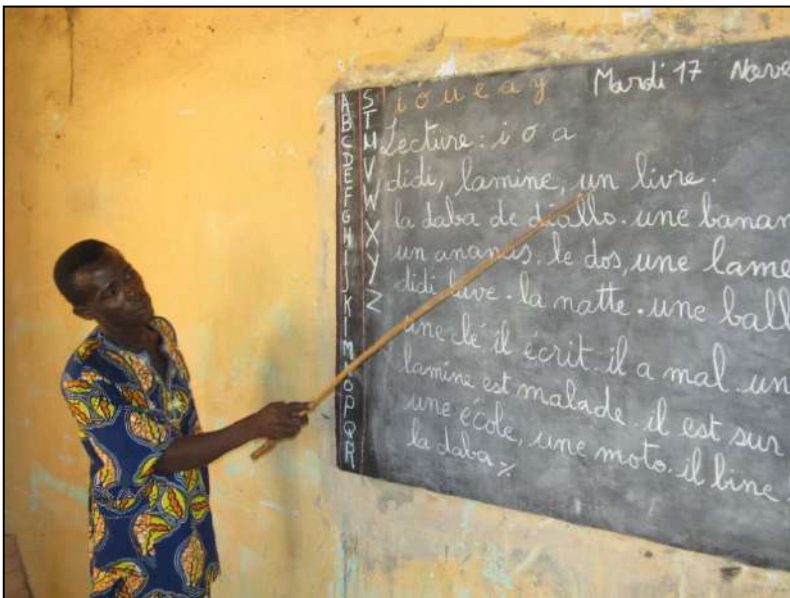 A B C D E F G H I J K L M O P Q R
S T U V W X Y Z
i o u e a y Mardi 17 Nove
Lecture : i o a
didi, lamine, un livre.
la daba de diallo. une banan
un ananas. le dos, une lame
didi lave. la natte. une ball
une lé. il écrit. il a mal. un
lamine est malade. il est sur
une école, une moto. il bine
la daba